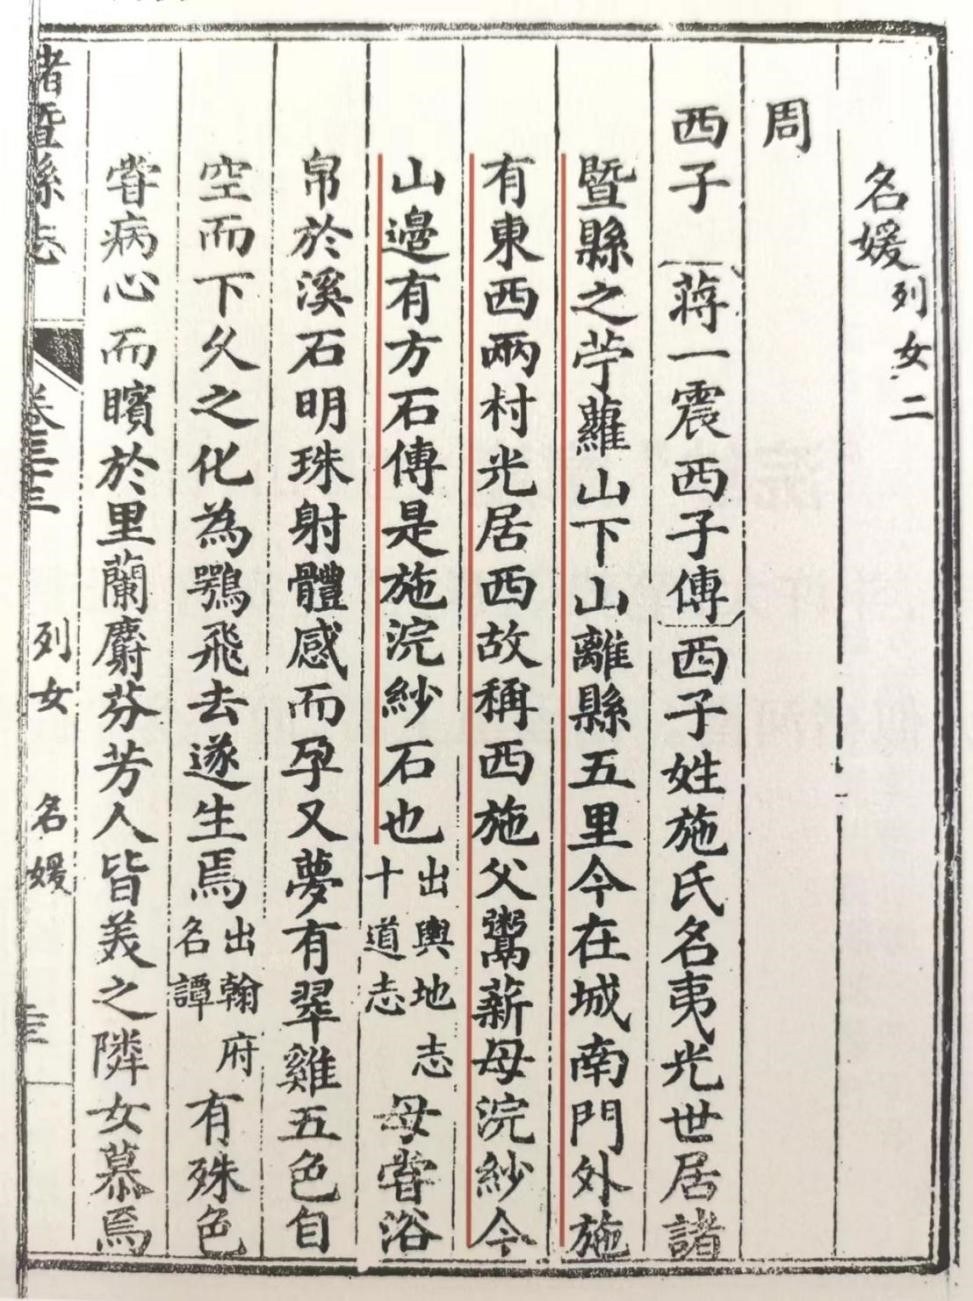 名媛列女二
周
西子蔣一震西子傳西子姓施氏名夷光世居諸
暨縣之苧蘿山下山離縣五里今在城南門外施
有東西兩村光居西故稱西施父鬻薪母浣紗今
山邊有方石傳是施浣紗石也出輿地志十道志母嘗浴
帛於溪石明珠射體感而孕又夢有翠雞五色自
空而下久之化為鶚飛去遂生焉出翰府名譚有殊色
嘗病心而矉於里蘭麝芬芳人皆羙之隣女慕焉
諸暨縣志 列女 名媛